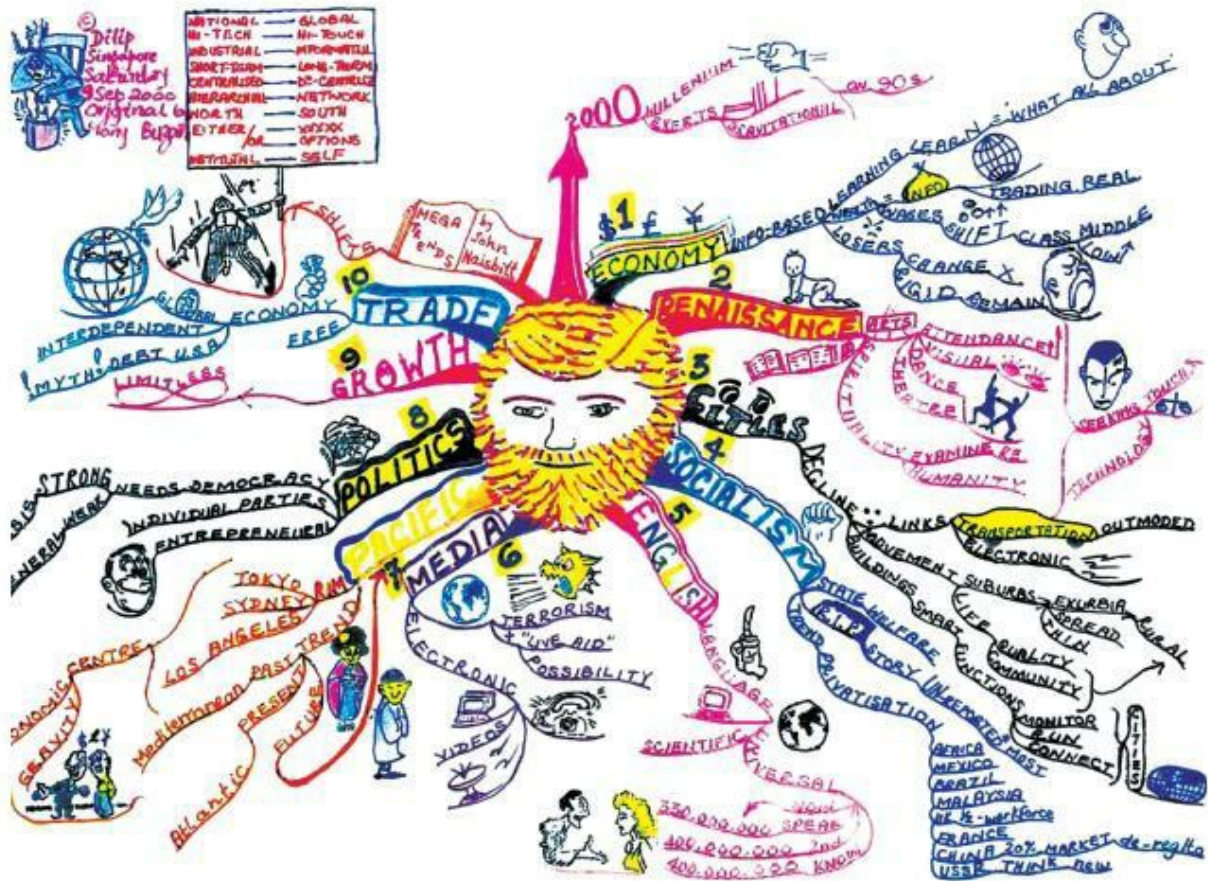 ©
Dilip
Singapore
Saturday
9 Sep 2000
Original by
Tony
NATIONAL — GLOBAL
HI-TECH — HI-TOUCH
INDUSTRIAL —
SHORT-TEAM — LONG-TERM
CENTRALISED —
— NETWORK
NORTH — SOUTH
EITHER /OR XXXXX OPTIONS
— SELF
SHIFTS
MEGA TRENDS
by John Naisbitt
2000
MILLENIUM
EXERTS
GRAVITATIONAL
ON 90s
1
$ £ ¥
ECONOMY
INFO-BASED
LEARNING LEARN = WHAT ALL ABOUT
WEALTH =
INFO
TRADING REAL
WAGES
SHIFT
CLASS MIDDLE
LOW
LOSERS
CHANGE X
RIGID REMAIN
2
RENAISSANCE
ARTS
ATTENDANCE
VISUAL
DANCE
THEATRE
SPIRITUALITY
EXAMINE RE
HUMANITY
SEEKING TOUCH
TECHNOLOGY
3
CITIES
DECLINE
LINKS
TRANSPORTATION
OUTMODED
ELECTRONIC
MOVEMENT
SUBURBS
EXURBIA
RURAL
SPREAD
THIN
LIFE
QUALITY
COMMUNITY
BUILDINGS SMART
FUNCTIONS
MONITOR
RUN
CONNECT
CITIES
4
SOCIALISM
STATE WELFARE
R.I.P
STORY UNREPORTED MOST
TREND PRIVATISATION
AFRICA
MEXICO
BRAZIL
MALAYSIA
UK ½-workforce
FRANCE
CHINA 20% MARKET de-reglto
USSR THINK new
5
ENGLISH
LANGUAGE
SCIENTIFIC
330.000.000 SPEAK
400.000.000 2nd
400.000.000 KNOW
6
MEDIA
TERRORISM
+ "LIVE AID"
POSSIBILITY
ELECTRONIC
VIDEOS
7
PACIFIC
RIM
TOKYO
SYDNEY
LOS ANGELES
CENTRE
GRAVITY
TREND
PAST
Mediterranean
PRESENT
Atlantic
FUTURE
8
POLITICS
NEEDS DEMOCRACY
STRONG
WEAK
INDIVIDUAL PARTIES
ENTREPRENEURAL
9
GROWTH
LIMITLESS
10
TRADE
FREE
GLOBAL ECONOMY
INTERDEPENDENT
MYTH! DEBT U.S.A